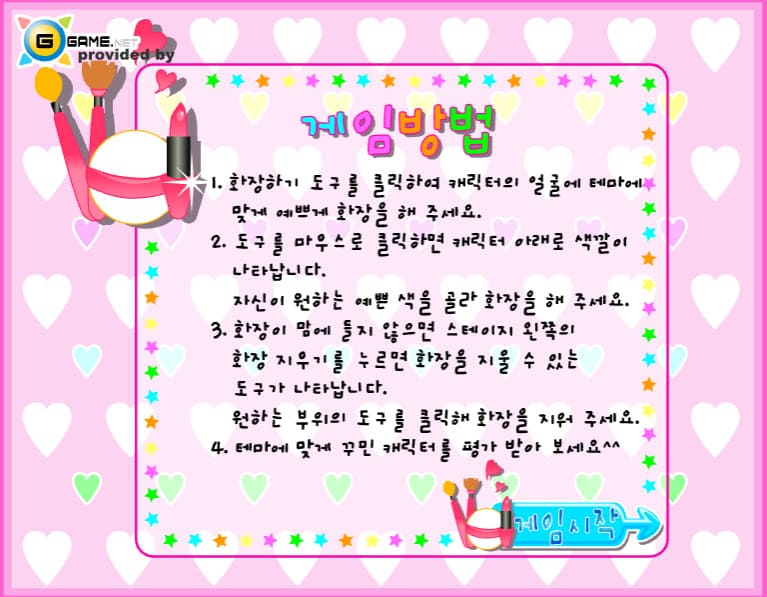 G GAME.NET
provided by
게임방법
1. 화장하기 도구를 클릭하여 캐릭터의 얼굴에 테마에
맞게 예쁘게 화장을 해 주세요.
2. 도구를 마우스로 클릭하면 캐릭터 아래로 색깔이
나타납니다.
자신이 원하는 예쁜 색을 골라 화장을 해 주세요.
3. 화장이 맘에 들지 않으면 스테이지 왼쪽의
화장 지우기를 누르면 화장을 지울 수 있는
도구가 나타납니다.
원하는 부위의 도구를 클릭해 화장을 지워 주세요.
4. 테마에 맞게 꾸민 캐릭터를 평가 받아 보세요^^
게임시작